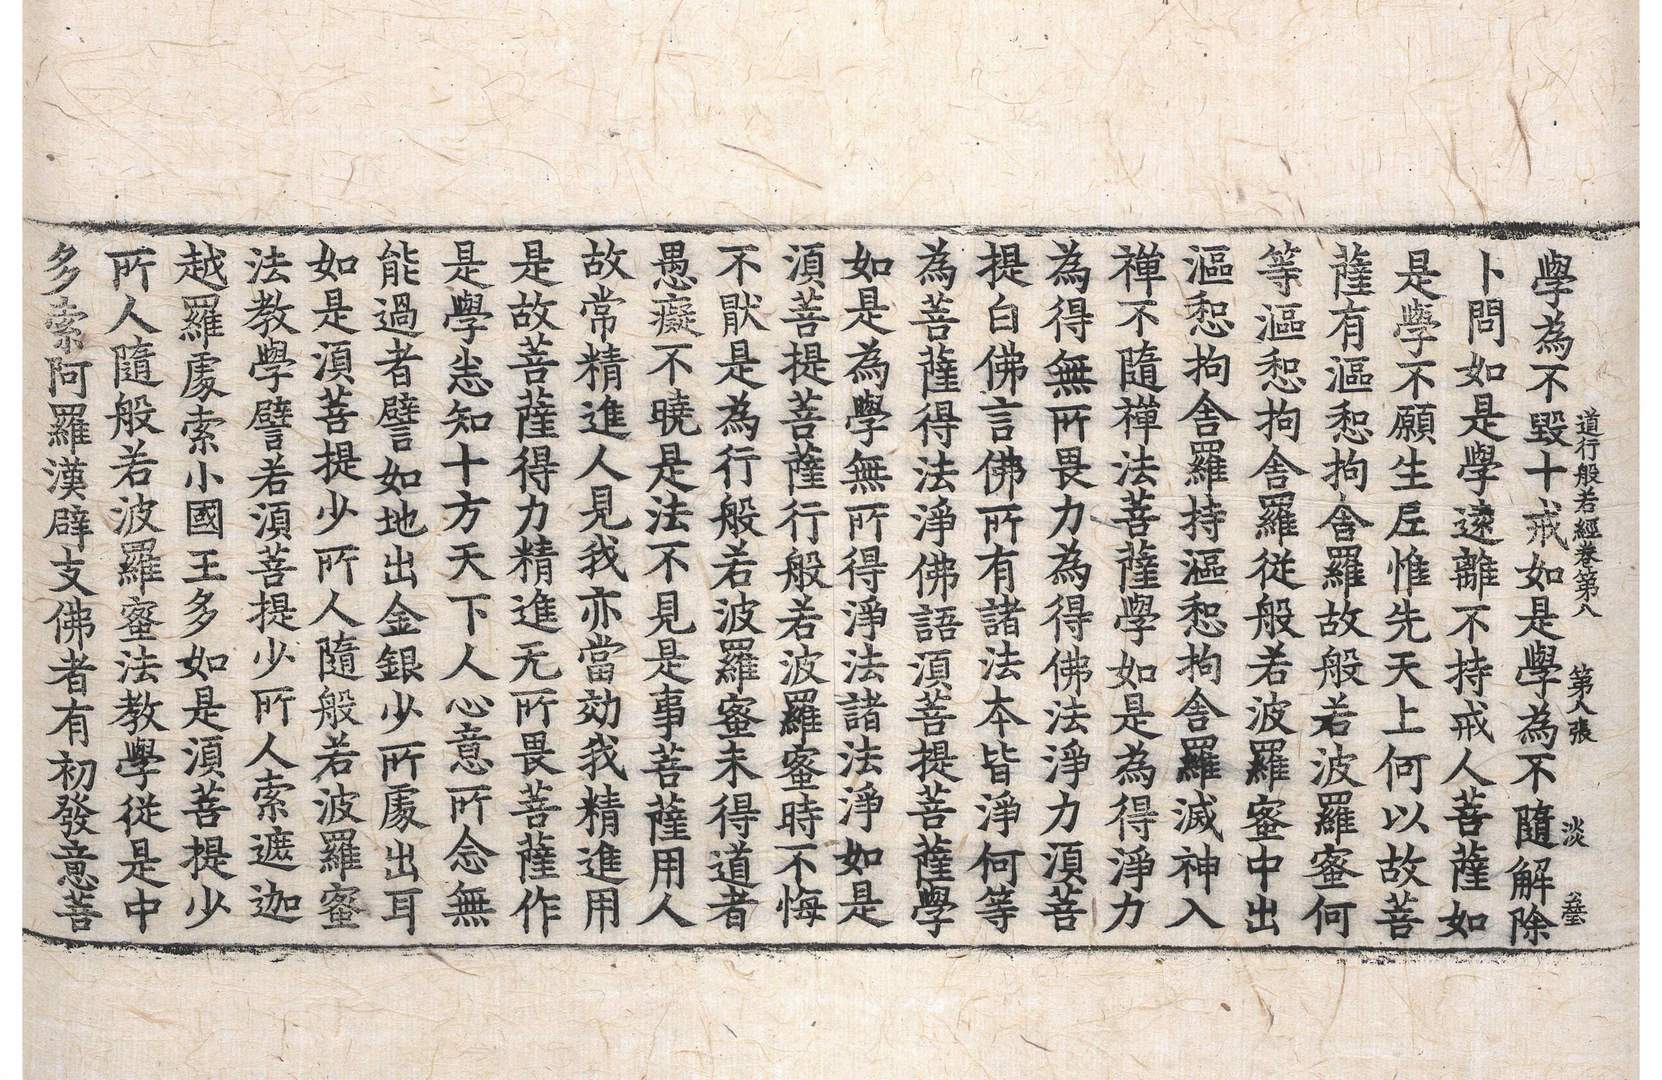 道行般若經卷第八 第八張 淡
學為不毀十戒如是學為不隨解除
卜問如是學遠離不持戒人菩薩如
是學不願生𠩄惟先天上何以故菩
薩有漚惒拘舍羅故般若波羅蜜何
等漚惒拘舍羅從般若波羅蜜中出
漚惒拘舍羅持漚惒拘舍羅滅神入
禪不隨禪法菩薩學如是為得淨力
為得無所畏力為得佛法淨力湏菩
提白佛言佛所有諸法夲皆淨何等
為菩薩得法淨佛語湏菩提菩薩學
如是為學無所得淨法諸法淨如是
湏菩提菩薩行般若波羅蜜時不悔
不猒是為行般若波羅蜜未得道者
愚癡不曉是法不見是事菩薩用人
故常精進人見我亦當効我精進用
是故菩薩得力精進无所畏菩薩作
是學悉知十方天下人心意所念無
能過者譬如地出金銀少所處出耳
如是湏菩提少所人隨般若波羅蜜
法教學譬若湏菩提少所人索遮迦
越羅處索小國王多如是湏菩提少
所人隨般若波羅蜜法教學從是中
多索阿羅漢辟支佛者有初發意菩